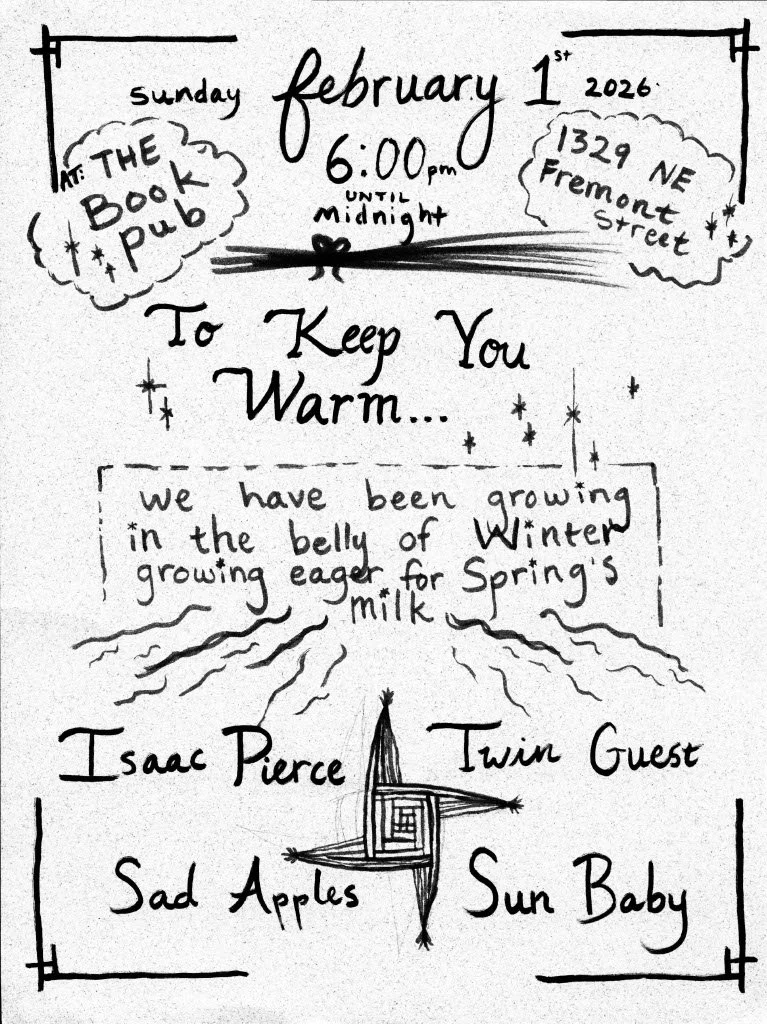 Sunday February 1st 2026
6:00pm
UNTIL
midnight
AT: THE
Book
pub
1329 NE
Fremont
Street
To Keep You
Warm...
we have been growing
in the belly of Winter
growing eager for Spring's
milk
Isaac Pierce
Twin Guest
Sad Apples
Sun Baby